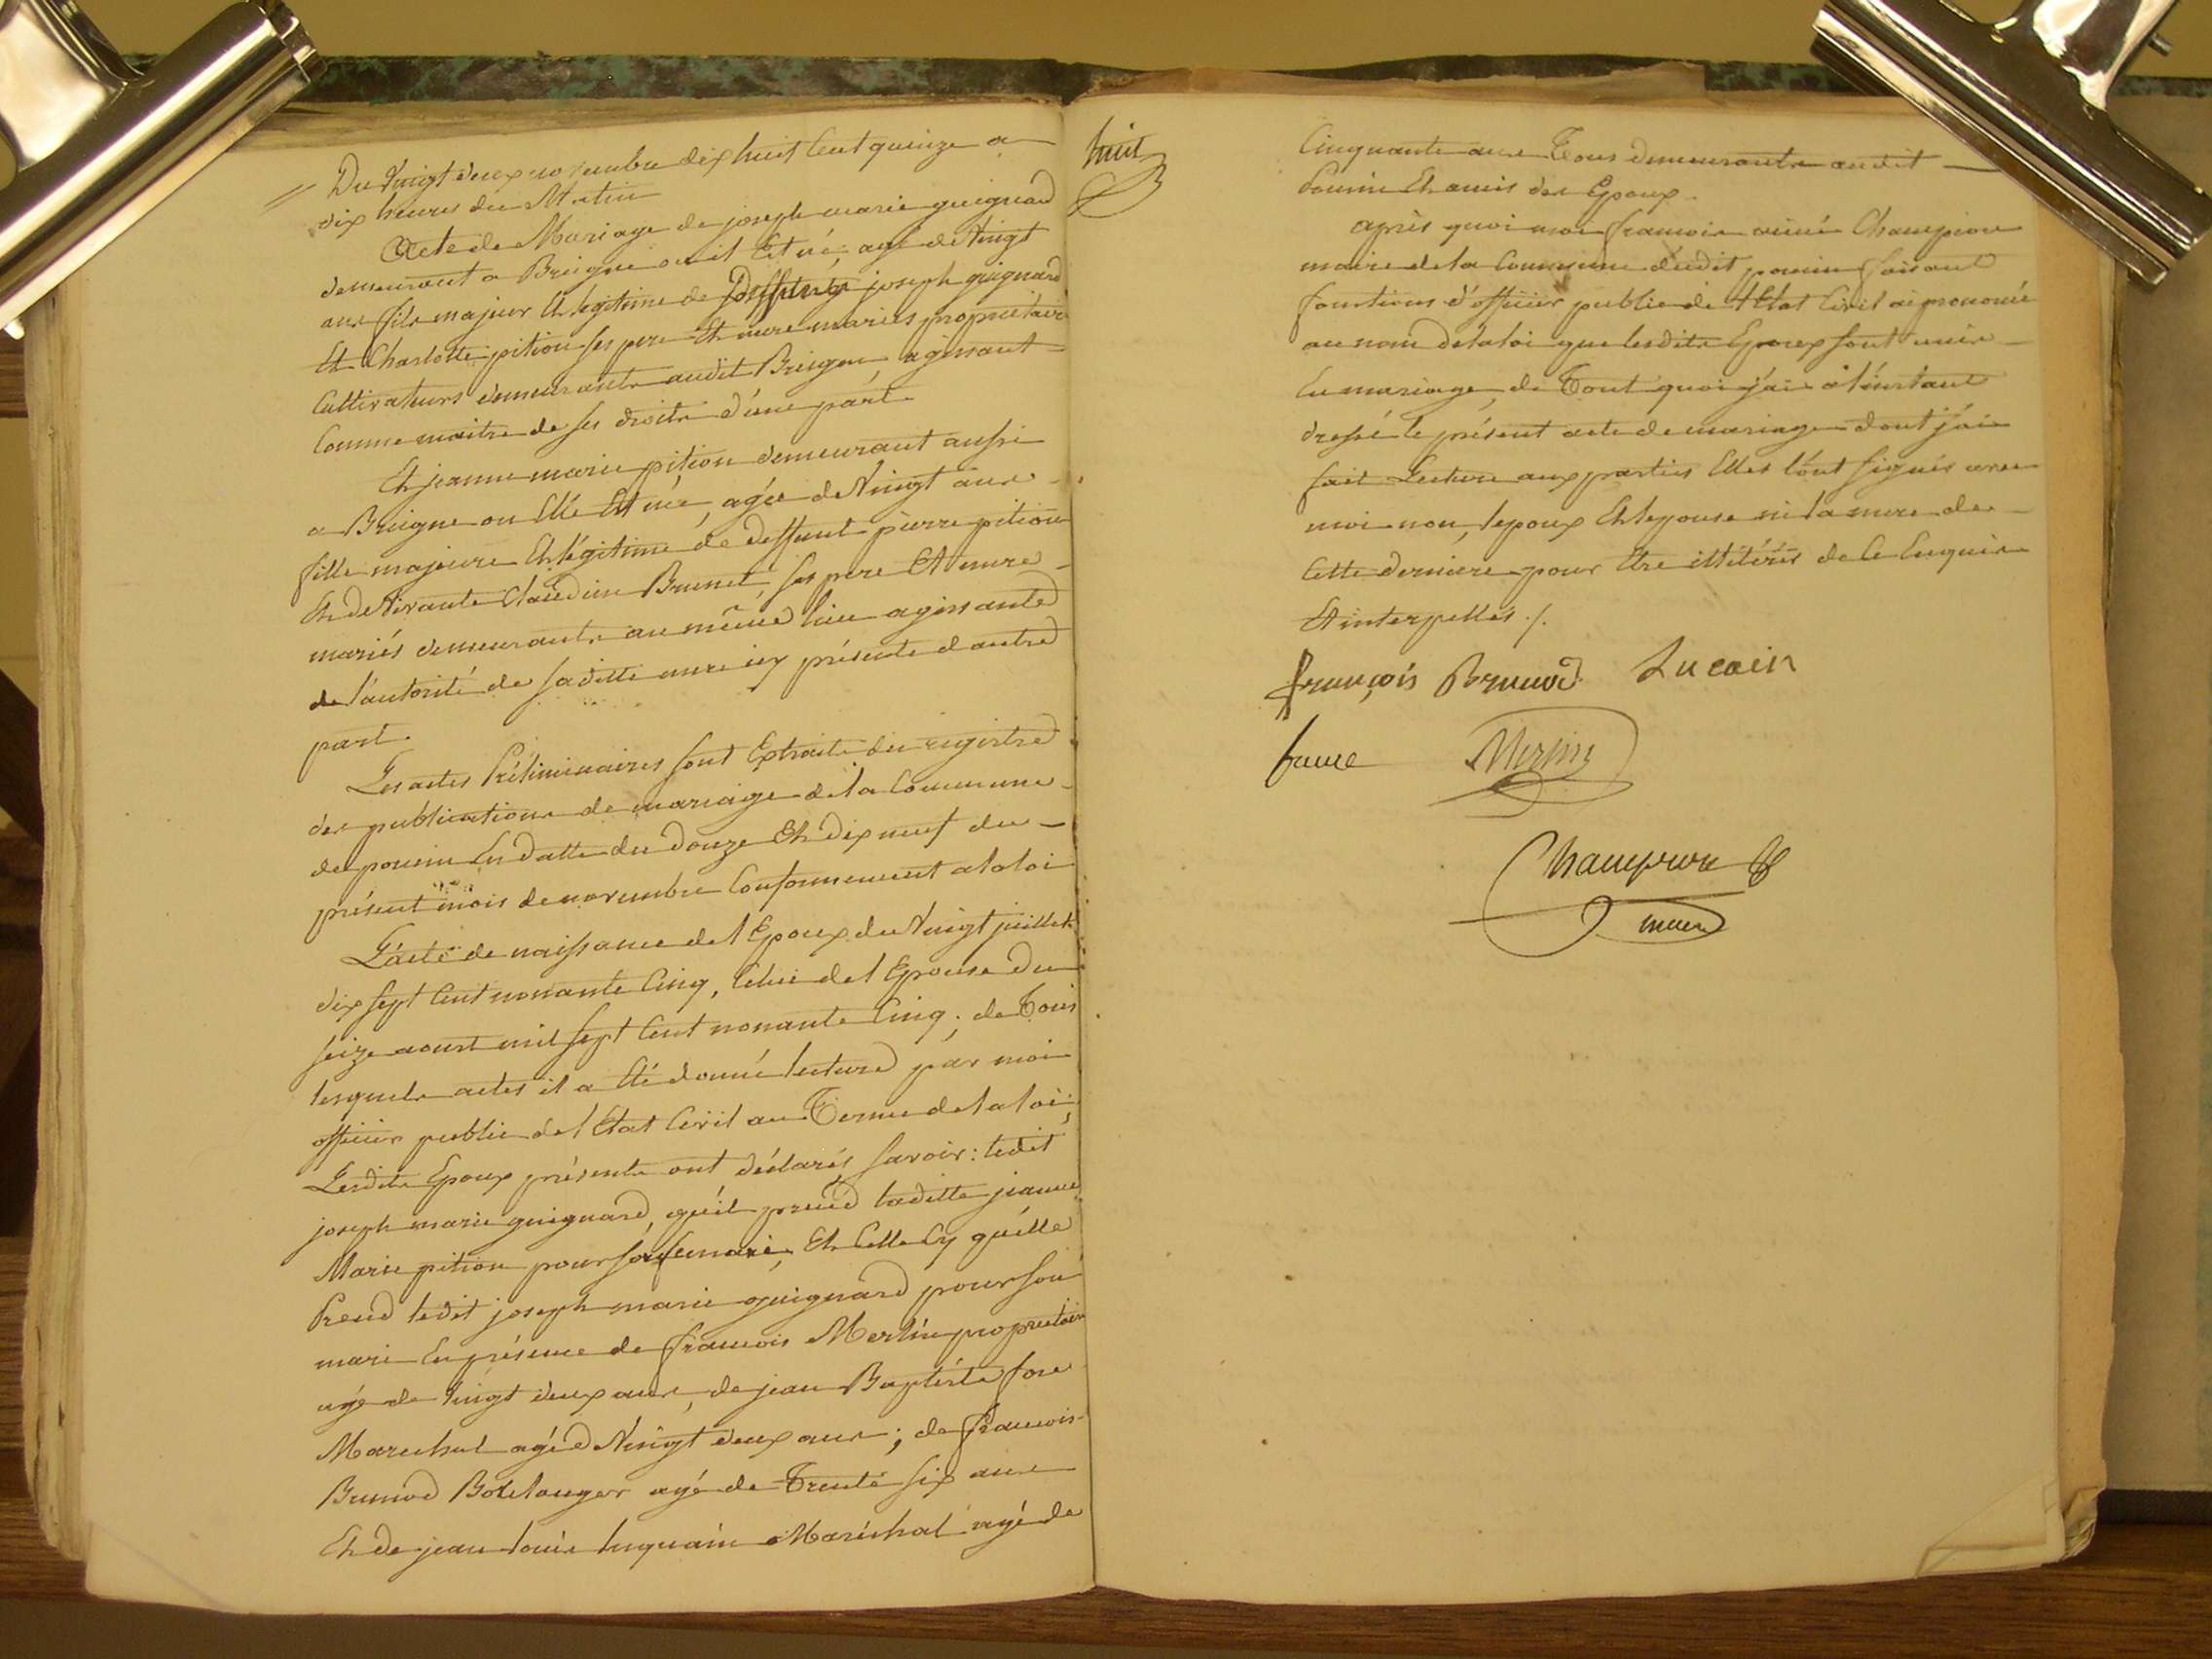 Du Vingt deux novembre dix huit Cent quinze a
dix heures du Matin
Acte de Mariage de joseph marie guignard
demeurant a Breigne ou il Est né, agé de Vingt
ans fils majeur Et legitime de joseph guignard
Et Charlotte pition ses pere Et mere mariés propriétaire
Cultivateurs demeurants audit Breigne, agissant
Comme maitre de ses droits d'une part
Et jeanne marie pition demeurant aussi
a Breigne ou Elle Est née, agée de Vingt ans
fille majeure Et légitime de deffunt pierre pition
Et de Vivante Claudine Brunet, ses pere Et mere
mariés demeurants au même lieu agissante
de l'autorité de saditte mere icy présente d'autre
part.
Les actes Préliminaires sont Extraits du registre
des publications de mariage de la Commune
de pouin En datte du douze Et dix neuf du
présent mois de novembre Conformement a la loi
L'acte de naissance de l'Epoux du Vingt juillet
dix sept Cent nonante Cinq, Celui de l'Epouse du
seize aoust mil sept Cent nonante Cinq; de Tous
lesquels actes il a Eté donné lecture par moi
officier public de l'Etat Civil au Terme de la loi;
Lesdits Epoux présents ont déclarés savoir: ledit
joseph marie guignard, qu'il prend laditte jeanne
Marie pition pour sa femme, Et Celle Cy qu'elle
Prend ledit joseph marie guignard pour son
mari En présence de françois Merlin propriétaire
agé de Vingt deux ans, de jean Baptiste fore
Marechal agé d Vingt deux ans; de françois
Brunod Boulanger agé de Trente six ans
Et de jean louis luquain Maréchal agé de
huit
Cinquante ans Tous demeurants audit
Pouin Et amis des Epoux.
après quoi moi françois aimé Champion
maire de la Commune dudit pouin faisant
fonctions d'officier public de l'Etat Civil ai prononcé
au nom de la loi que lesdits Epoux sont unis
En mariage, de Tout quoi j'ai à l'instant
dressé le présent acte de mariage dont j'ai
fait Lecture aux parties Elles l'ont signés avec
moi non, lepoux Et lepouse ni la mere de
Cette derniere pour Etre illitérés de Ce Enquis
Et interpellés ./.
françois Brunod Lucain
faure Merlin
Champion
maire